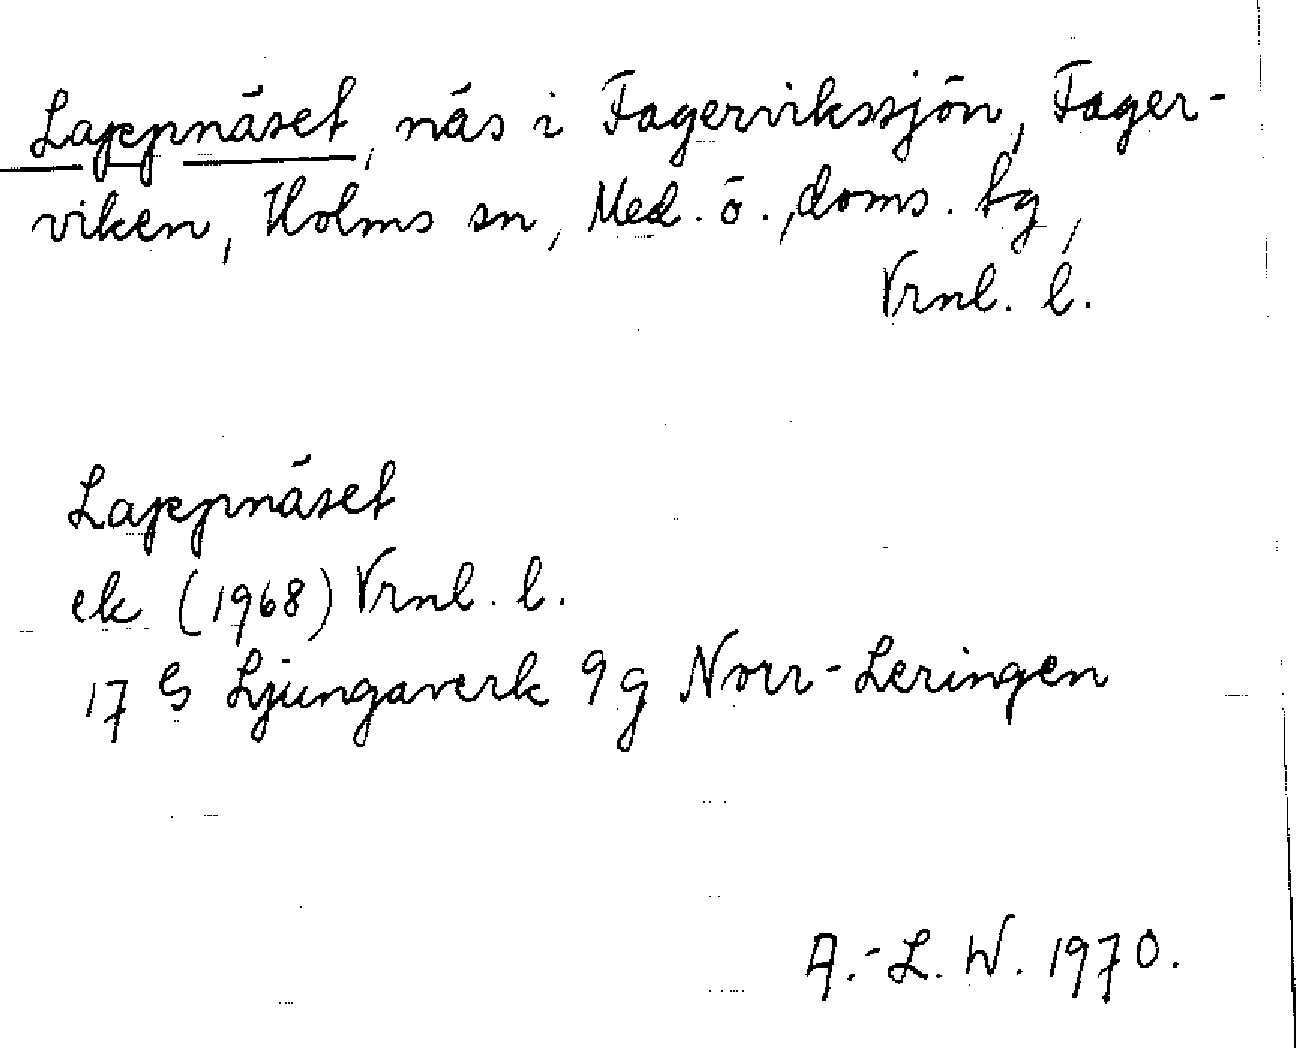 Lappnäset, näs i Fagervikssjön, Fager-
viken, Holms sn, Med. ö., doms. tg,
Vrnl. l.
Lappnäset
ek (1968) Vrnl. l.
17 G Ljungaverk 9g Norr-Leringen
A.-L. W. 1970.